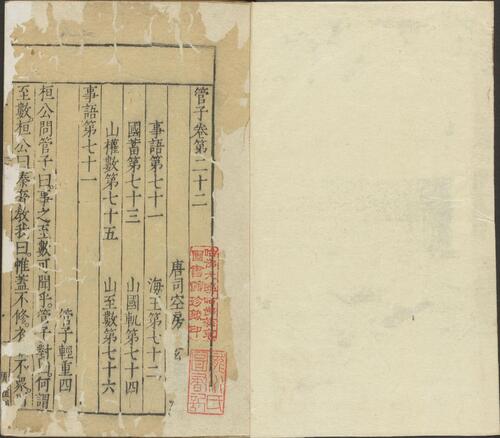 管子卷第二十二
唐司空房
事語第七十一 海王第七十二
國蓄第七十三 山國軌第七十四
山權數第七十五 山至數第七十六
事語第七十一 管子輕重四
桓公問管子曰事之至數可聞乎管子對 何謂
至數桓公曰秦奢教我曰帷蓋不修衣 不衆
哈佛大學哈佛燕京圖書館珍藏印